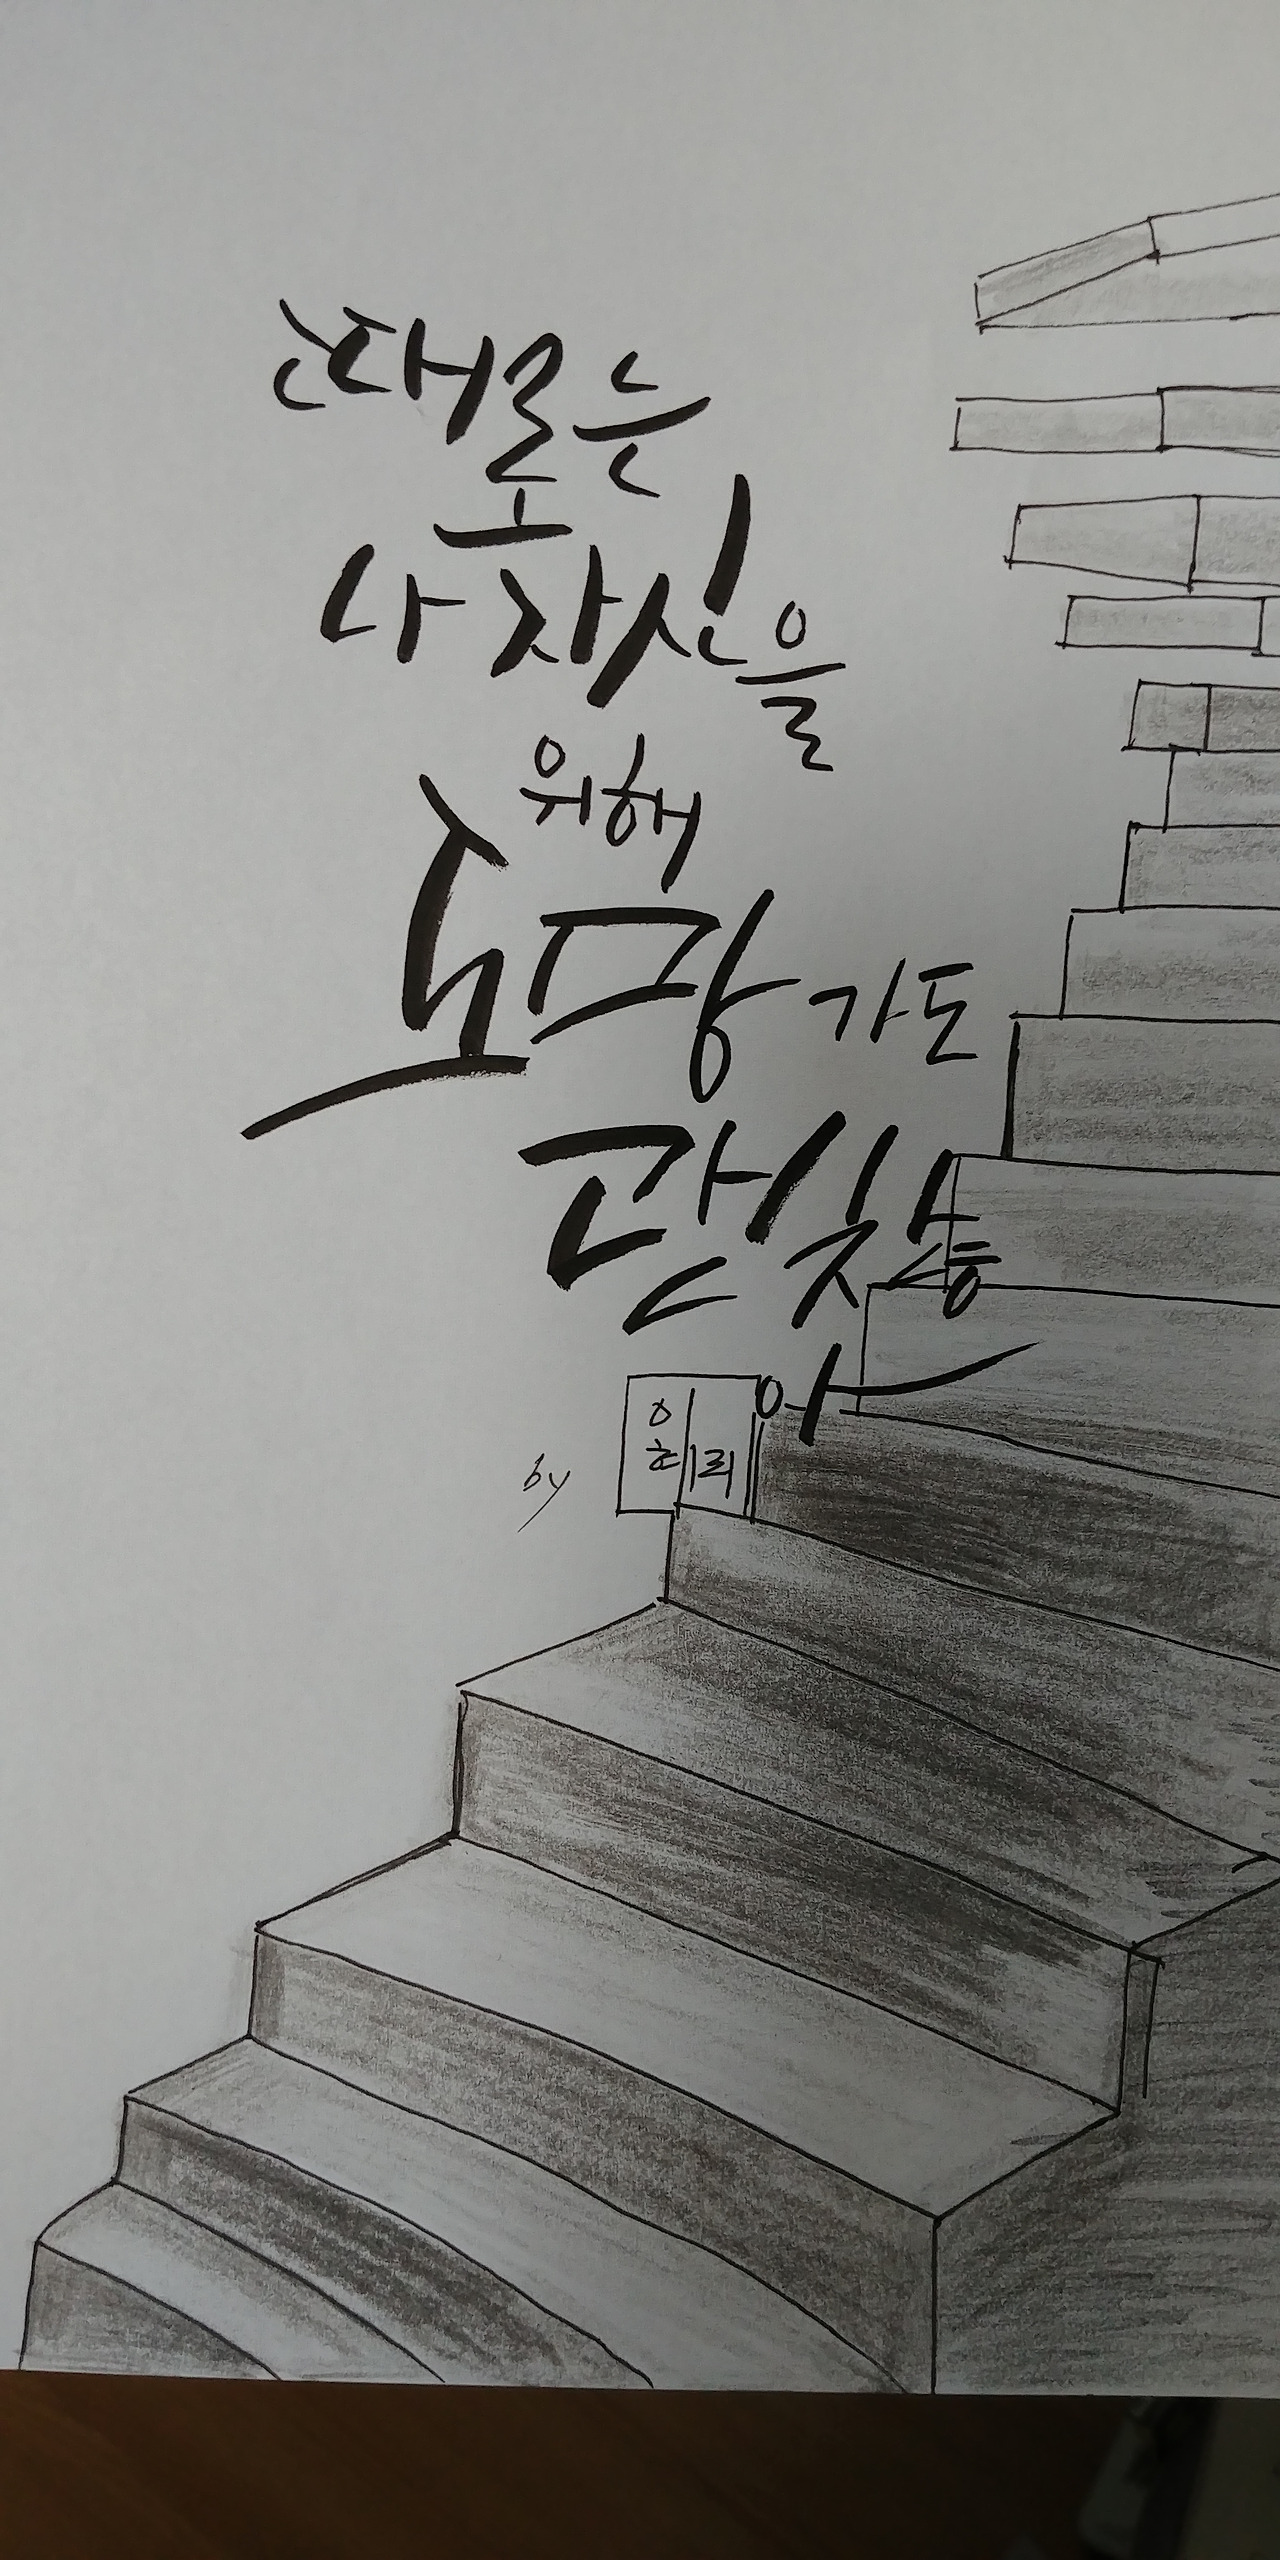 때로는
나 자신을
위해
도망가도
괜찮
아
by